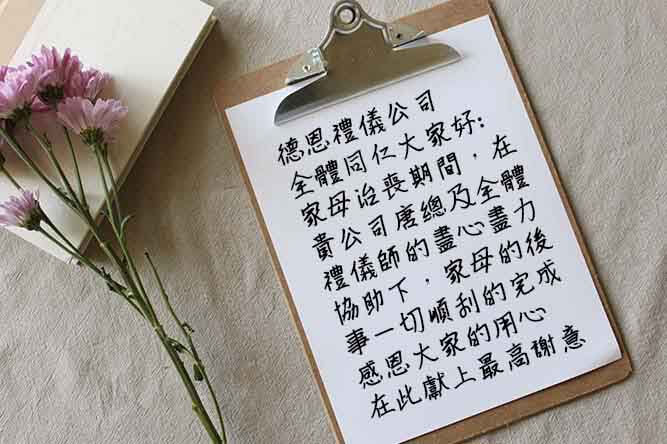 德恩禮儀公司
全體同仁大家好:
家母治喪期間，在
貴公司唐總及全體
禮儀師的盡心盡力
協助下，家母的後
事一切順利的完成
感恩大家的用心
在此獻上最高謝意